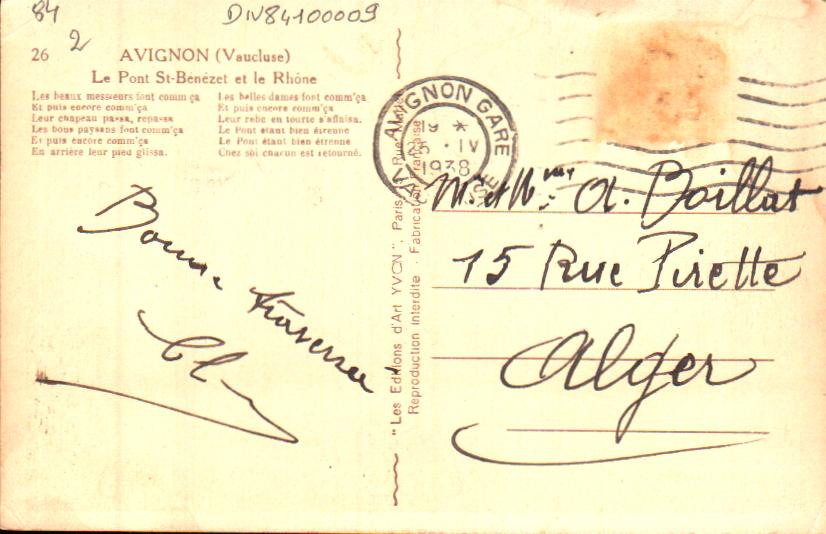 84
2
DIV84100009
26 AVIGNON (Vaucluse)
Le Pont St-Bénézet et le Rhône
Les beaux messieurs font comm'ça
Et puis encore comm'ça
Leur chapeau passa, repassa
Les bons paysans font comm'ça
Et puis encore comm'ça
En arrière leur pied glissa.
Les belles dames font comm'ça
Et puis encore comm'ça
Leur robe en tourte s'affaisa.
Le Pont étant bien étrenné
Le Pont étant bien étrenné
Chez soi chacun est retourné.
Bonne traversée
"Les Editions d'Art YVON", Paris, Rue
Reproduction interdite - Fabrication Française
AVIGNON GARE
19 *
25 · IV
1938
VAUCLUSE
Mr et Mme A. Boillat
15 Rue Pirette
Alger